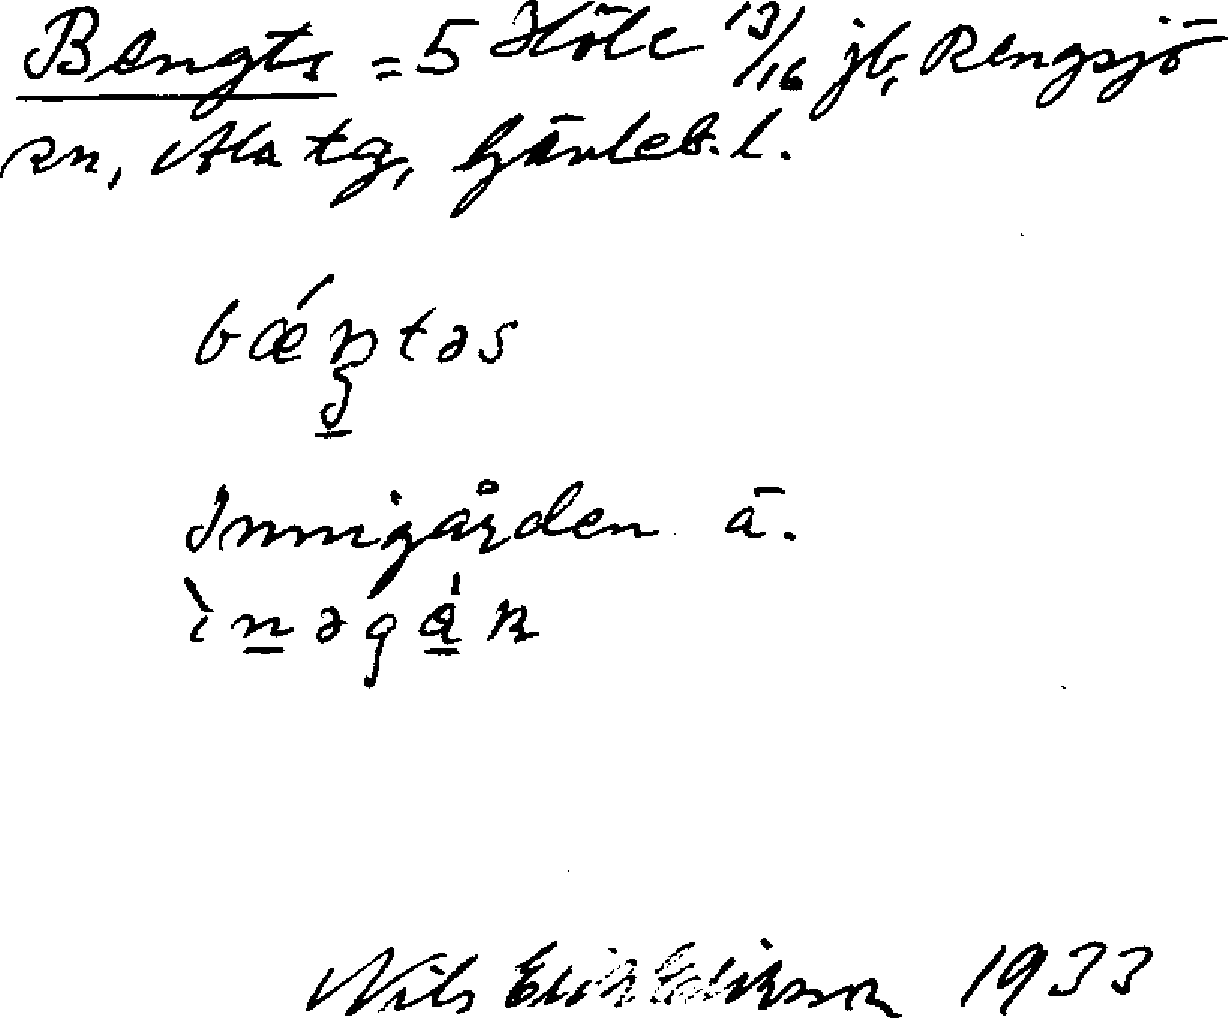 Bengts = 5 Höle 13/16 jb, Rengsjö
sn, Ala tg, Gävleb. l.
bǽŋtəs
Innigården ä.
ìnəgán
Nils Erik Eriksson 1933